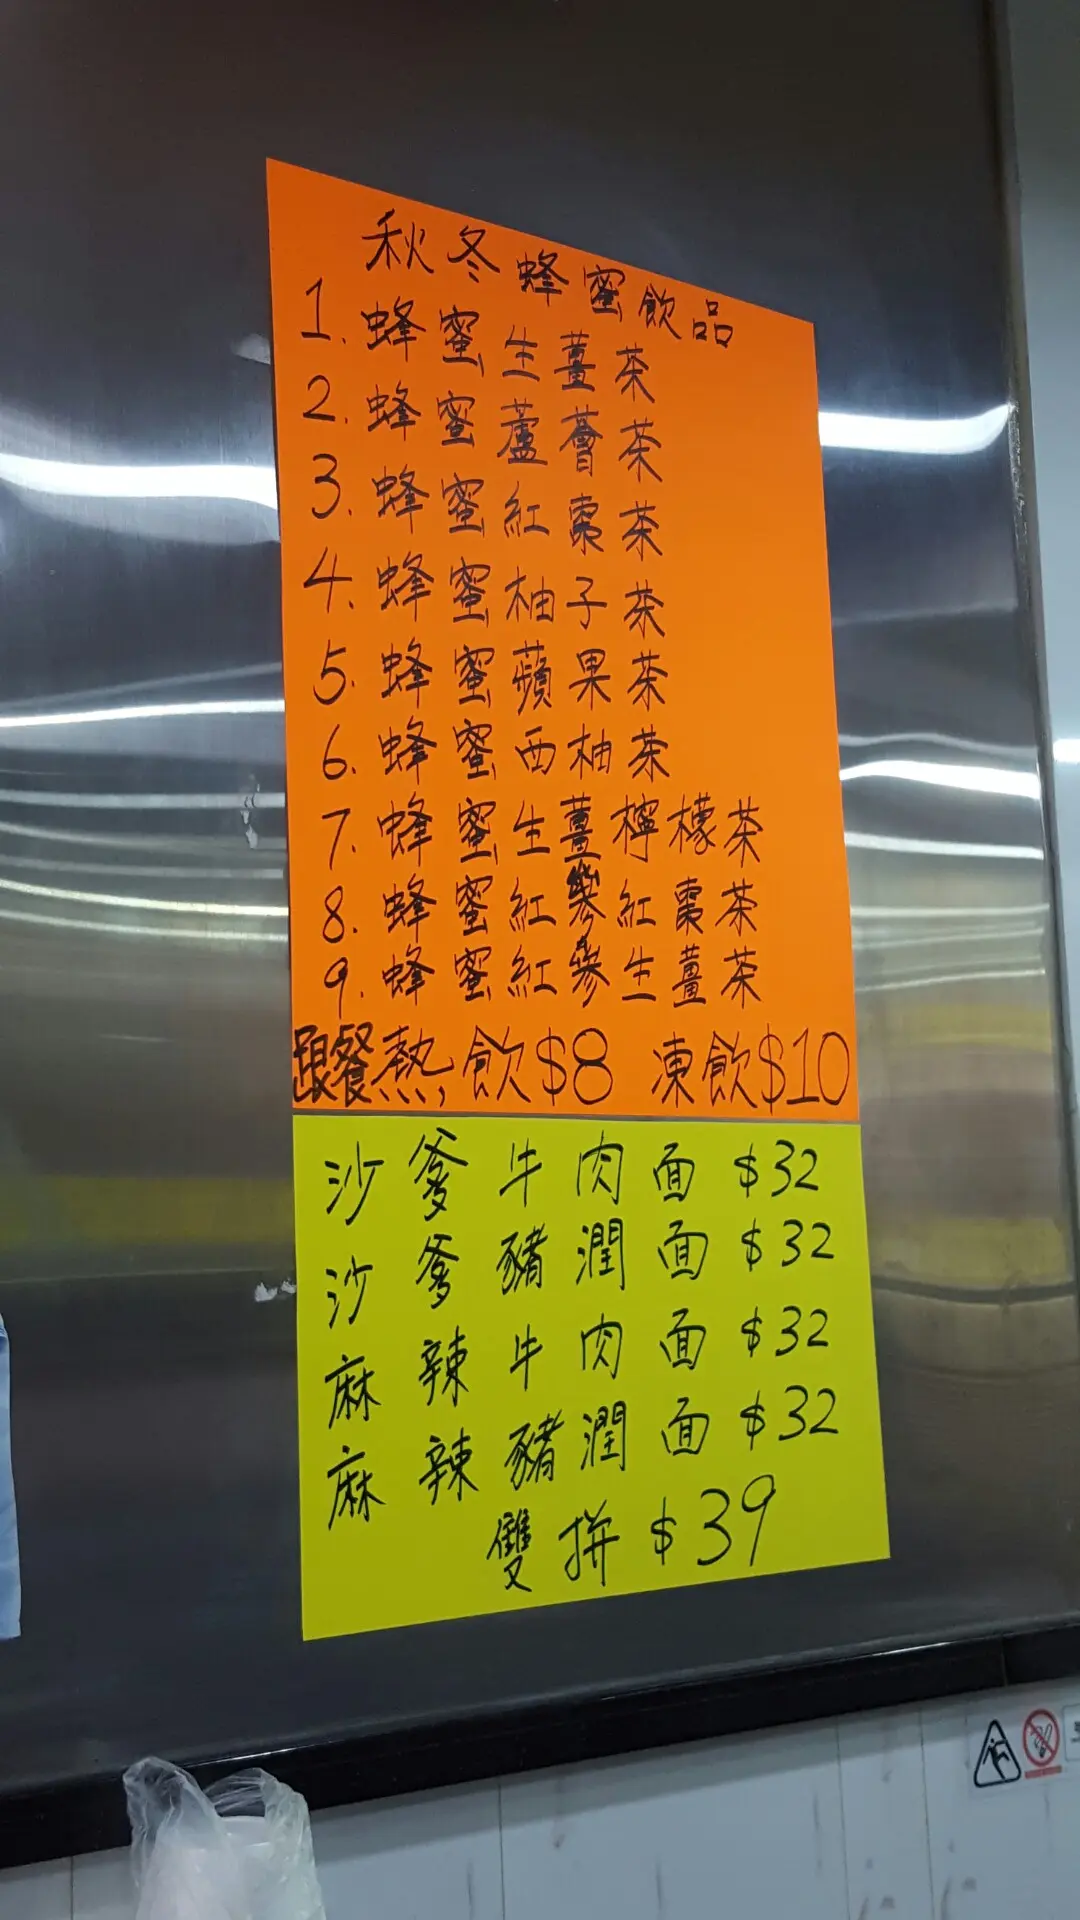 秋冬蜂蜜飲品
1. 蜂蜜生薑茶
2. 蜂蜜蘆薈茶
3. 蜂蜜紅棗茶
4. 蜂蜜柚子茶
5. 蜂蜜蘋果茶
6. 蜂蜜西柚茶
7. 蜂蜜生薑檸檬茶
8. 蜂蜜紅參紅棗茶
9. 蜂蜜紅參生薑茶
跟餐熱飲$8 凍飲$10
沙爹牛肉面 $32
沙爹豬潤面 $32
麻辣牛肉面 $32
麻辣豬潤面 $32
雙拼 $39